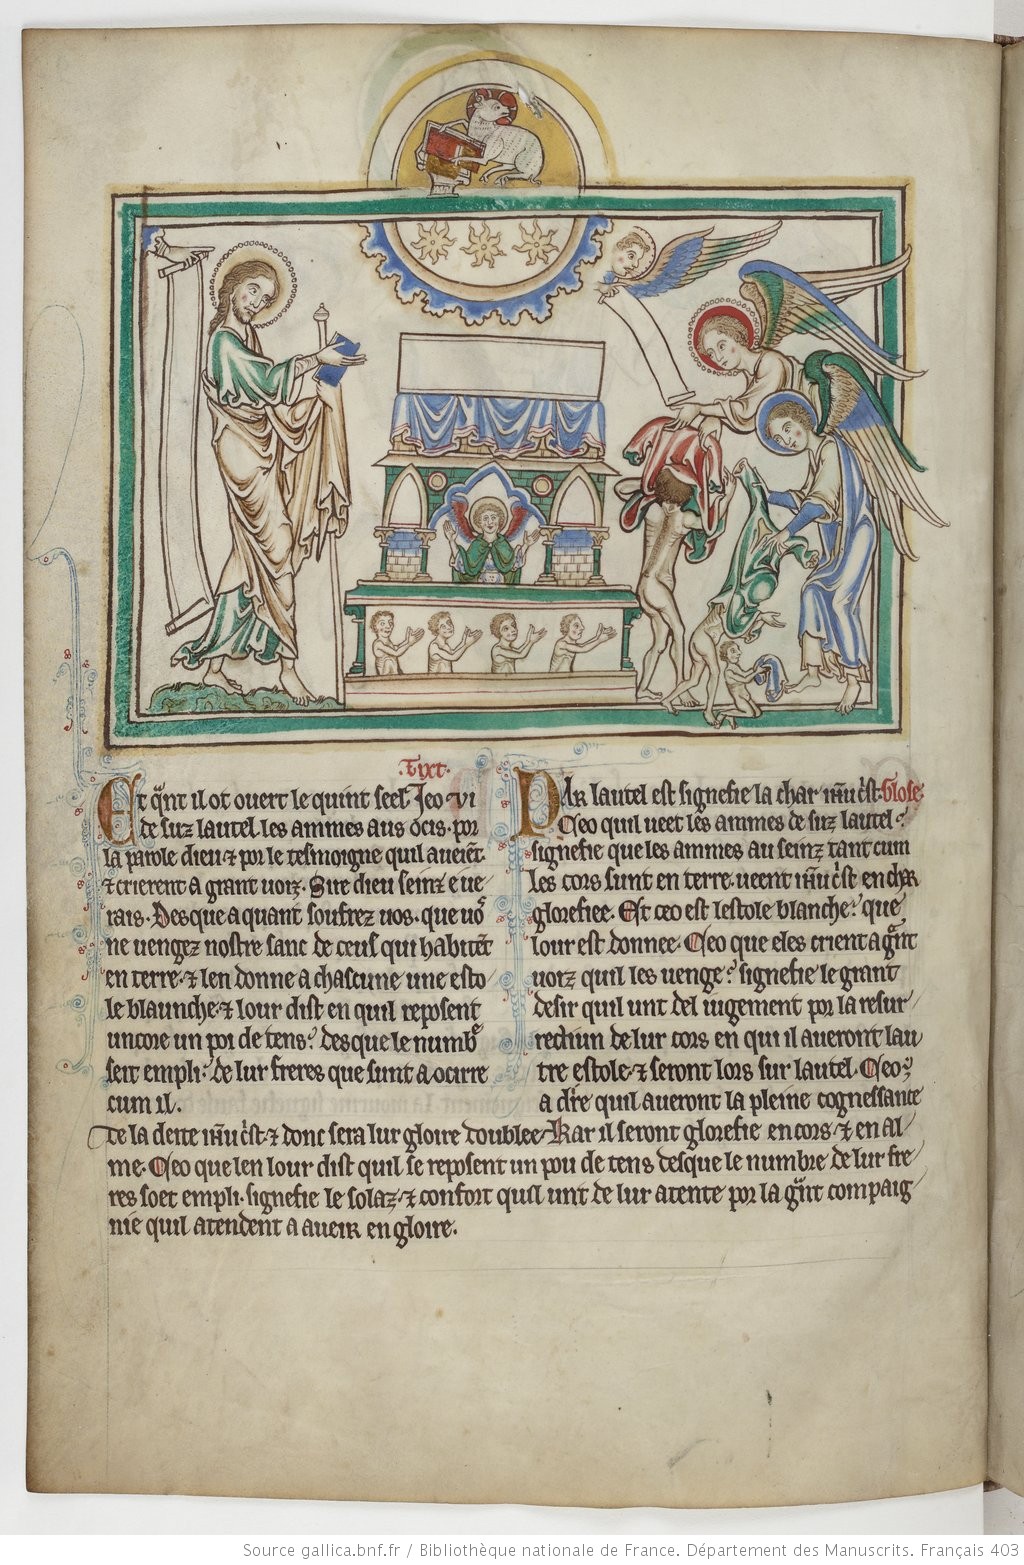 .Tixt.
Et q̃nt il ot ouert le quint seel. Jeo vi
de suz lautel les ammes aus ocis. por
la parole dieu ⁊ por le tesmoigne quil aueiẽt.
⁊ crierent a grant uoiz. Sire dieu seinz e ue
rais. Desque a quant soufrez uos. que uoͦ
ne uengez nostre sanc de ceus qui habitẽt
en terre. ⁊ len donne a chascune une esto
le blaunche. ⁊ lour dist en quil reposent
uncore un poi de tens. desque le numbͤ
seit empli. de lur freres que sunt a ocirre
cum il.
PAR lautel est signefie la char ih̃u c̃st. Glose.
Ceo quil ueet les ammes de suz lautel.
signefie que les ammes au seinz tant cum
les cors sunt en terre. ueent ih̃u c̃st en char
glorefiee. Et ceo est lestole blanche. que
lour est donnee. Ceo que eles crient a g̃nt
uoiz quil les uenge. signefie le grant
desir quil unt del iugement por la resur
rectiun de lur cors en qui il aueront lau
tre estole. ⁊ seront lors sur lautel. Ceo
a dire quil aueront la pleine cognessante
de la deite ih̃u c̃st. ⁊ donc sera lur gloire doublee. Kar il seront glorefie en cors. ⁊ en al
me. Ceo que len lour dist quil se reposent un pou de tens desque le numbre de lur fre
res soet empli. signefie le solaz. ⁊ confort quil unt de lur atente por la g̃nt compaig
nie quil atendent a aueir en gloire.
Source gallica.bnf.fr / Bibliothèque nationale de France. Département des Manuscrits. Français 403